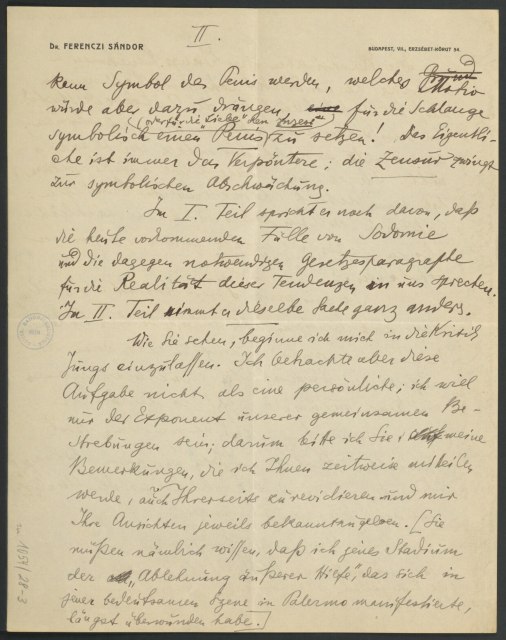 II.
DR. FERENCZI SÁNDOR
BUDAPEST, VII., ERZSÉBET-KÖRUT 54.
kann Symbol des Penis werden, welches Motiv
würde aber dazu drängen, für die Schlange
symbolisch einen Penis zu setzen! Das Eigentli-
che ist immer das Verpöntere; die Zensur zwingt
zur symbolischen Abschwächung.
Im I. Teil spricht er noch davon, daß
die heute vorkommenden Fälle von Sodomie
und die dagegen notwendigen Gesetzesparagraphe
für die Realität dieser Tendenzen in uns sprechen.
Im II. Teil nimmt er dieselbe Sache ganz anders.
Wie Sie sehen, beginne ich mich in die Kritik
Jungs einzulassen. Ich betrachte aber diese
Aufgabe nicht als eine persönliche; ich will
nur der Exponent unserer gemeinsamen Be-
strebungen sein; darum bitte ich Sie meine
Bemerkungen, die ich Ihnen zeitweise mitteilen
werde, auch Ihrerseits zu revidieren und mir
Ihre Ansichten jeweils bekanntzugeben. [Sie
müßen nämlich wissen, daß ich jenes Stadium
der „Ablehnung äußerer Hilfe", das sich in
jener bedeutsamen Szene in Palermo manifestierte,
längst überwunden habe.]
1054/28-3